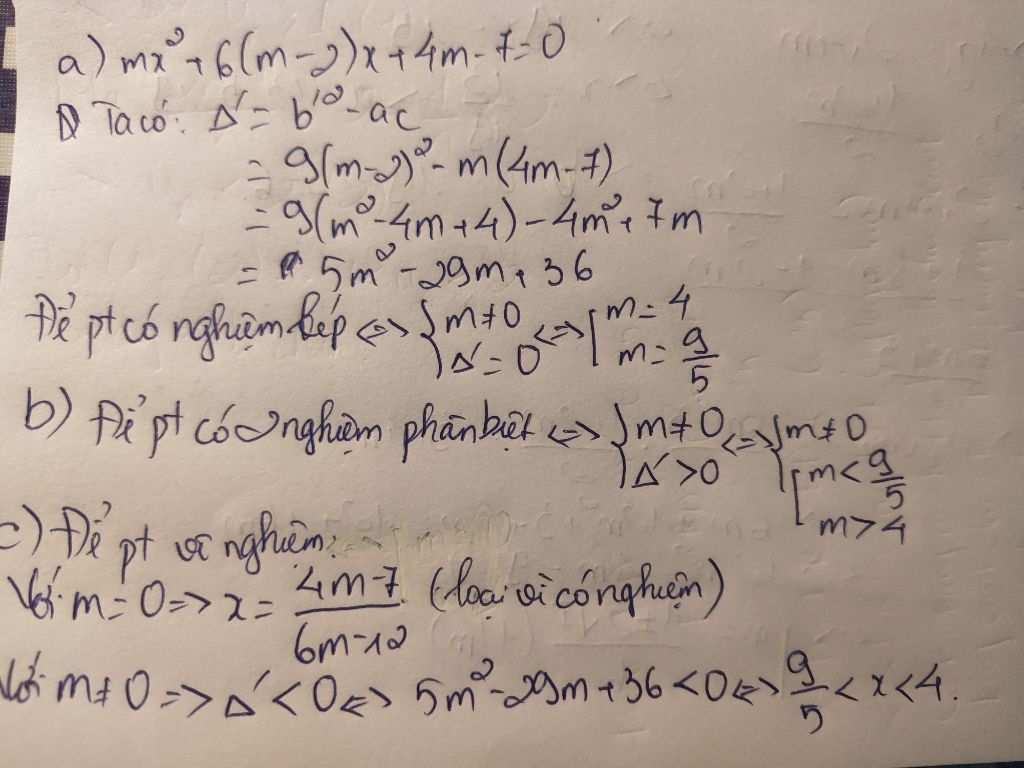 a) mx² + 6(m-2)x + 4m-7=0
Ta có: Δ' = b'² - ac
= 9(m-2)² - m(4m-7)
= 9(m²-4m+4) - 4m² + 7m
= 5m² - 29m + 36
Để pt có nghiệm kép <=> { m≠0 <=> [ m = 4
Δ' = 0 m = 9/5
b) Để pt có 2 nghiệm phân biệt <=> { m≠0 <=> { m≠0
Δ' > 0 [ m < 9/5
m > 4
c) Để pt vô nghiệm:
Với m = 0 => x = (4m-7)/(6m-12) (loại vì có nghiệm)
Với m≠0 => Δ' < 0 <=> 5m² - 29m + 36 < 0 <=> 9/5 < x < 4.